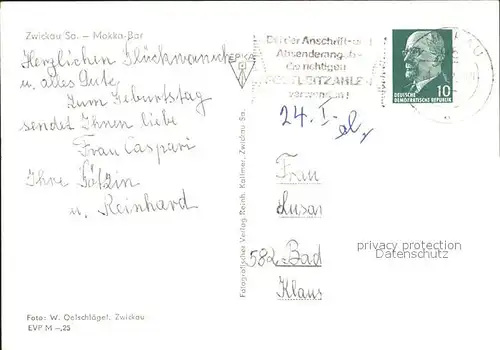 Zwickau Sa. – Mokka-Bar
Herzlichen Glückwunsch
u. alles Gute
Zum Geburtstag
sendet Ihnen liebe
Frau Caspari
Ihre
u. Reinhard
Foto: W. Oelschlägel, Zwickau
EVP M –,25
Fotografischer Verlag Reinh. Kallmer, Zwickau Sa.
Bei der Anschrift- und
Absenderangabe
die richtigen
POSTLEITZAHLEN
verwenden!
10
DEUTSCHE
DEMOKRATISCHE REPUBLIK
24. I.
Frau
Susan
582 Bad
Klaus
privacy protection
Datenschutz